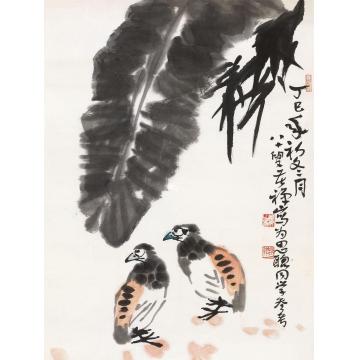 丁巳年初冬月
八十叟苦禪写为思聰同学参考